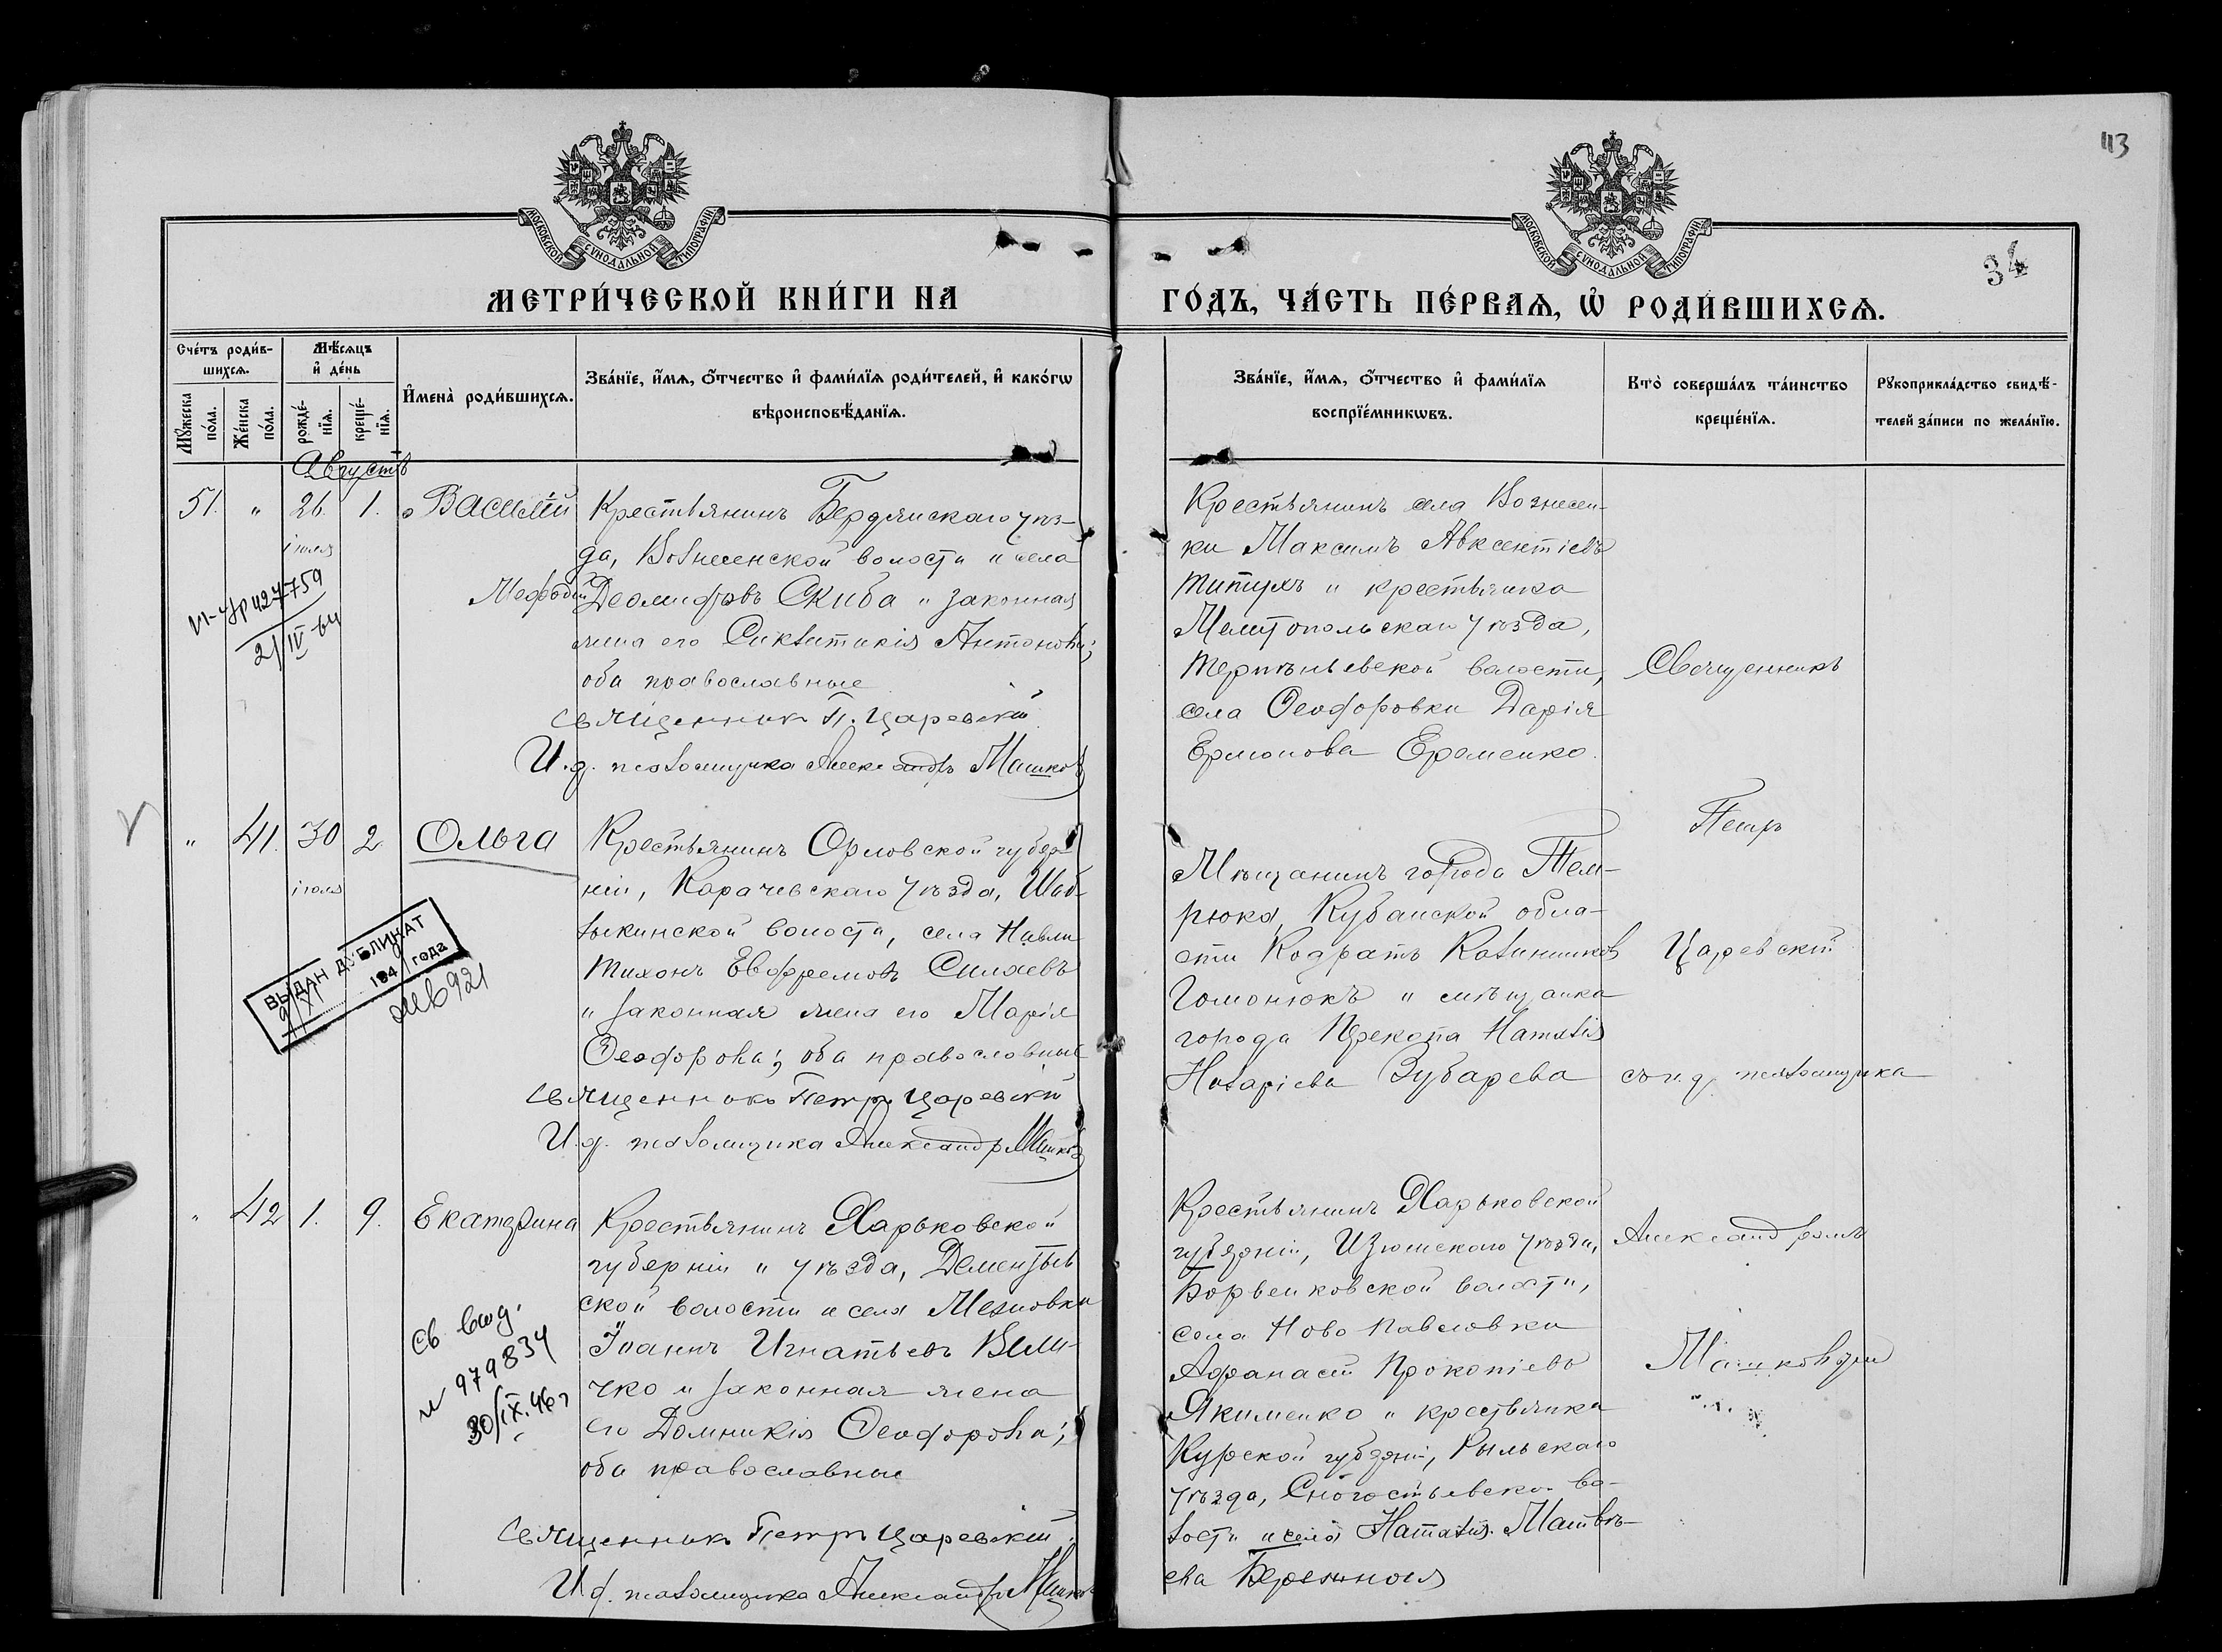 113
34
МОСКОВСКОЙ СѴНОДАЛЬНОЙ ТИПОГРАФІИ
МОСКОВСКОЙ СѴНОДАЛЬНОЙ ТИПОГРАФІИ
МЕТРИ́ЧЕСКОЙ КНИ́ГИ НА
ГО́ДЪ, ЧА́СТЬ ПЕ́РВАѦ, Ѡ҆ РОДИ́ВШИХСѦ.
Сче́тъ роди́в-
шихсѧ.
Мꙋ́жеска по́ла.
Же́нска по́ла.
Мѣ́сѧцъ
и҆ де́нь
рожде́-нїѧ.
креще́-нїѧ.
И҆мена̀ роди́вшихсѧ.
Зва́нїе, и҆́мѧ, ѻ҆́тчество и҆ фами́лїѧ роди́телей, и҆ како́гѡ
вѣроисповѣ́данїѧ.
Зва́нїе, и҆́мѧ, ѻ҆́тчество и҆ фами́лїѧ
воспрїе́мникѡвъ.
Кто̀ соверша́лъ та́инство
креще́нїѧ.
Рꙋкоприкла́дство свидѣ́-
телей за́писи по жела́нїю.
Августъ
51. " 26. 1. Василій
іюля
Крестьянинъ Бердянскаго уѣз-
да, Вознесенской волости и села
Мефодій Деомидовъ Скиба и законная
жена его Синклитикія Антонова;
оба православные
Священникъ П. Царевскій
И. д. псаломщика Александръ Машковъ
427759
2/IV-64
Крестьянинъ села Вознесен-
ки Максимъ Авксентіевъ
Титухъ и крестьянка
Мелитопольскаго уѣзда,
Терпѣньевской волости,
села Ѳеодоровки Дарія
Ермолова Еременко.
" 41. 30 2 Ольга
іюля
Крестьянинъ Орловской губер-
ніи, Карачевскаго уѣзда, Шаб-
лыкинской волости, села Навли
Тихонъ Евфремовъ Силаевъ
и законная жена его Марія
Ѳеодорова; оба православные
Священникъ Петръ Царевскій
И. д. псаломщика Александръ Машковъ
ВЫДАН ДУБЛИКАТ
194 года
921
Мѣщанинъ города Тем-
рюка, Кубанской обла-
сти Кодратъ Калинниковъ
Гомонюкъ и мѣщанка
города Перекопа Наталія
Назаріева Зубарева
" 42 1. 9. Екатерина
Крестьянинъ Харьковской
губерніи и уѣзда, Дементьев
ской волости и села
Іоаннъ Игнатьевъ Вели-
чко и законная жена
его Домникія Ѳеодорова;
оба православные
Священникъ Петръ Царевскій
И. д. псаломщика Александръ Машковъ
Св выд.
№ 979834
30/IX.46г
Крестьянинъ Харьковской
губерніи, Изюмскаго уѣзда,
Борвенковской волости,
села Ново Павловки
Афанасій Прокопіевъ
Якименко и крестьянка
Курской губерніи, Рыльскаго
уѣзда, Снагостьевской во-
лости и села Наталія Матвѣ-
ева Бережная
Священникъ
Петръ
Царевскій
съ и. д. псаломщика
Александромъ
Машковымъ